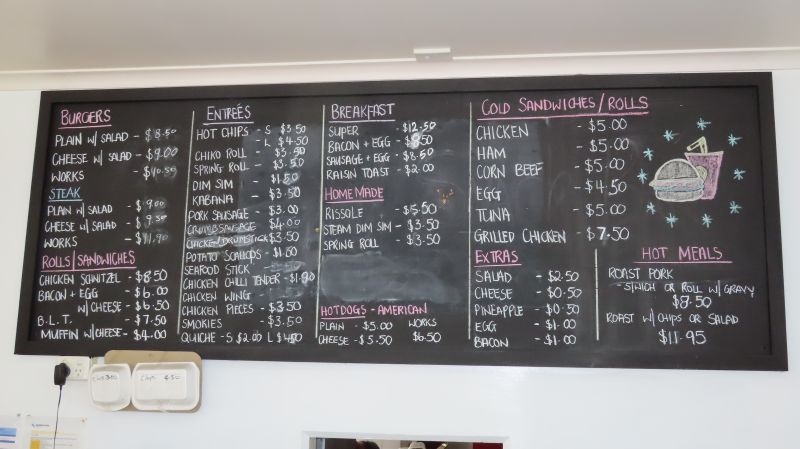 BURGERS
PLAIN W/ SALAD - $8.50
CHEESE W/ SALAD - $9.00
WORKS - $10.50
STEAK
PLAIN W/ SALAD - $9.00
CHEESE W/ SALAD - $9.50
WORKS - $11.90
ROLLS/SANDWICHES
CHICKEN SCHNITZEL - $8.50
BACON + EGG - $6.00
W/ CHEESE - $6.50
B.L.T. - $7.50
MUFFIN W/ CHEESE - $4.00
ENTREÉS
HOT CHIPS - S $3.50
L $4.50
CHIKO ROLL - $3.50
SPRING ROLL - $3.50
DIM SIM $1.50
KABANA - $3.50
PORK SAUSAGE - $3.00
CRUMB SAUSAGE $4.00
CHICKEN DRUMSTICK $3.50
POTATO SCALLOPS - $1.50
SEAFOOD STICK -
CHICKEN CHILLI TENDER - $1.90
CHICKEN WING -
CHICKEN PIECES - $3.50
SMOKIES - $3.50
QUICHE - S $2.00 L $4.50
BREAKFAST
SUPER - $12.50
BACON + EGG - $8.50
SAUSAGE + EGG - $8.50
RAISIN TOAST - $2.00
HOMEMADE
RISSOLE - $5.50
STEAM DIM SIM - $3.50
SPRING ROLL - $3.50
HOTDOGS - AMERICAN
PLAIN - $5.00 WORKS
CHEESE - $5.50 $6.50
COLD SANDWICHES/ROLLS
CHICKEN - $5.00
HAM - $5.00
CORN BEEF - $5.00
EGG - $4.50
TUNA - $5.00
GRILLED CHICKEN - $7.50
EXTRAS
SALAD - $2.50
CHEESE - $0.50
PINEAPPLE - $0.50
EGG - $1.00
BACON - $1.00
HOT MEALS
ROAST PORK
- S/WICH OR ROLL W/ GRAVY
$8.50
ROAST W/ CHIPS OR SALAD
$11.95
CHIPS